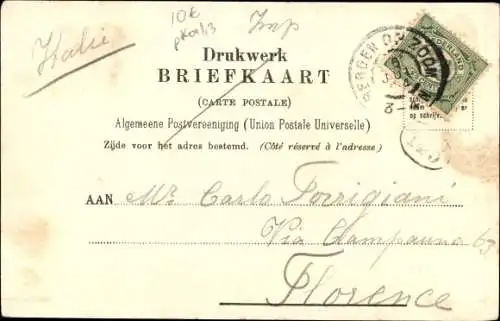 10k
Imp
Italie
Drukwerk
BRIEFKAART
(CARTE POSTALE)
Algemeene Postvereeniging (Union Postale Universelle)
Zijde voor het adres bestemd. (Côté réservé à l'adresse)
BERGEN OP ZOOM
AAN Mr. Carlo Torrigiani
Via Ciampauna 63
Florence